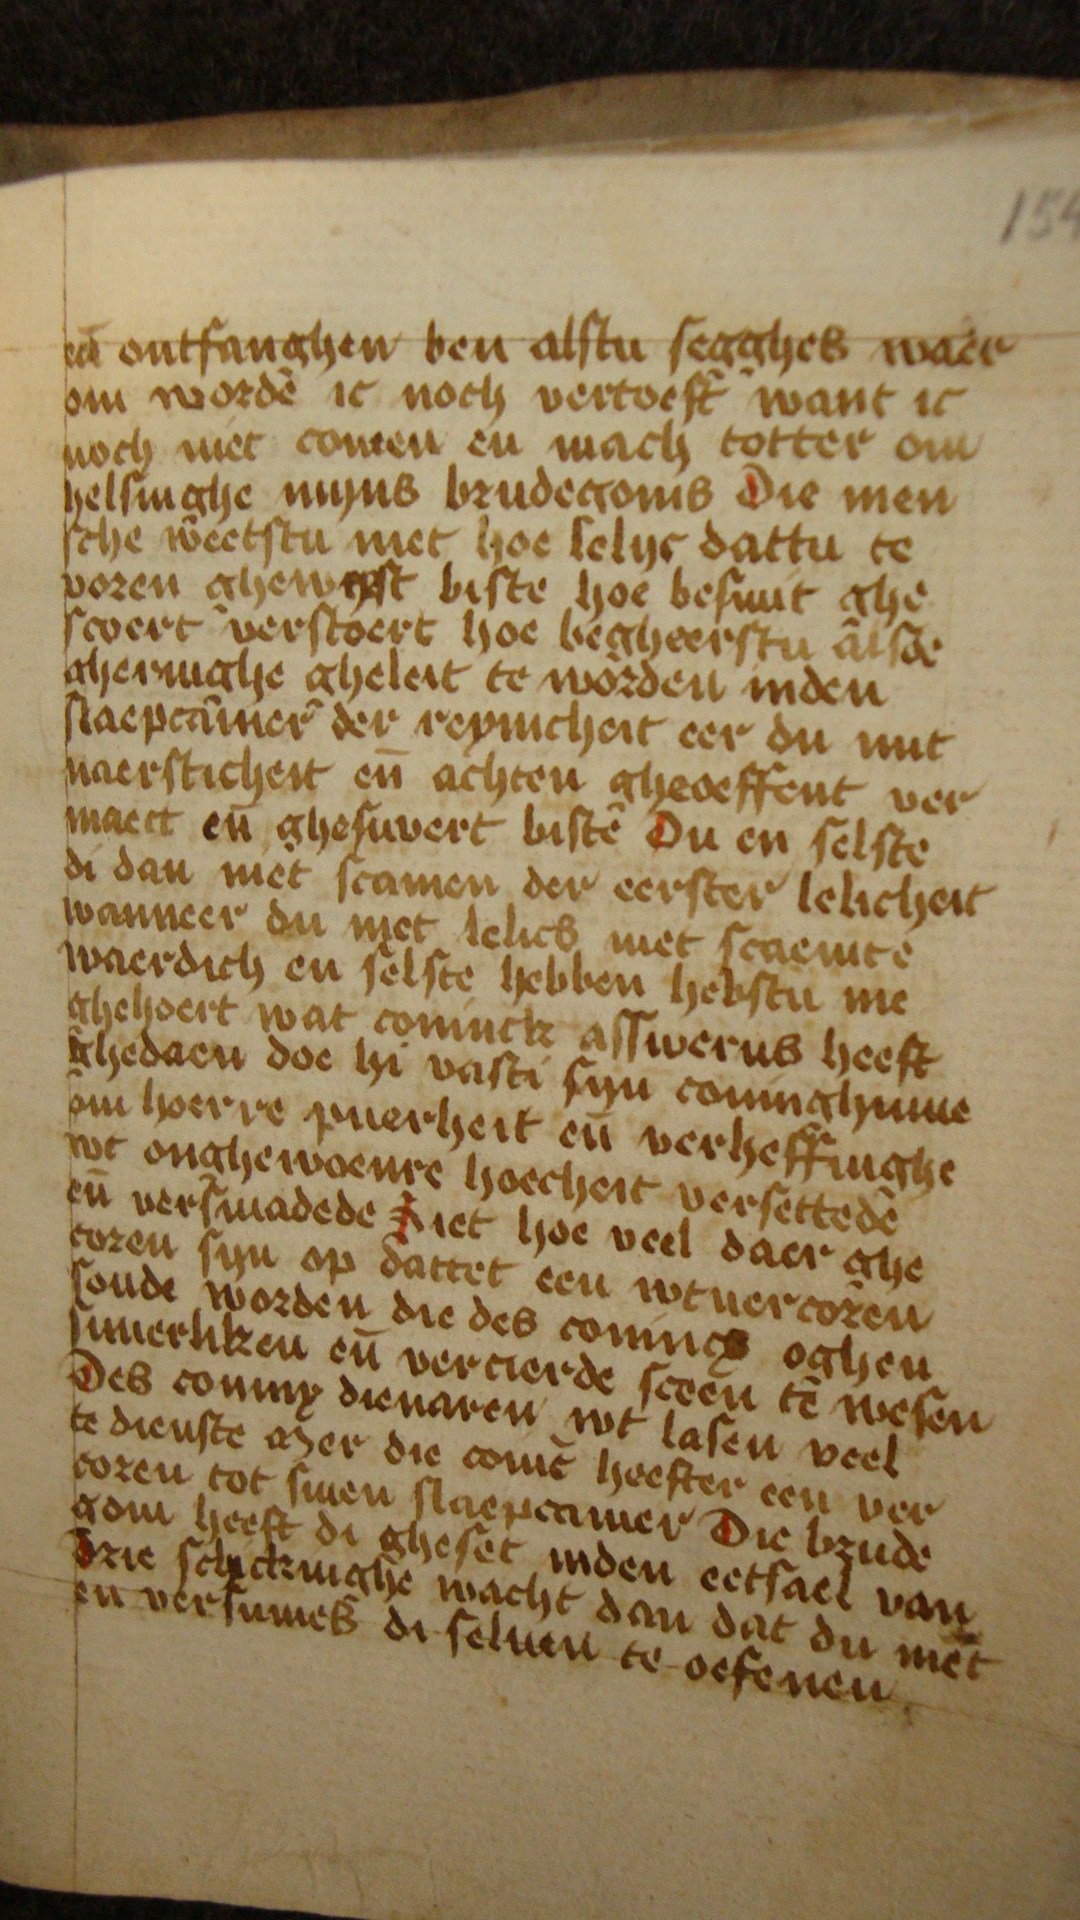 154
eñ ontfanghen ben alstu segghes waer
om wordē ic noch vertoeft want ic
noch niet comen en mach totter om
helsinghe mijns brudegoms Die men
sche weetstu niet hoe lelijc dattu te
voren gheweest biste hoe besmit ghe
scoert verstoert hoe begheerstu alsde
gheringhe gheleit te worden inden
slaepcamer der reynicheit eer du mit
naersticheit eñ achten gheoeffent ver
maect eñ ghesuvert biste Du en selste
di dan niet scamen der eerster lelicheit
wanneer du niet lelics niet scaemte
waerdich en selste hebben hebstu nie
ghehoert wat coninck asswerus heeft
ghedaen doe hi vasti sijn coninghinne
om hoerre puerheit eñ verheffinghe
wt onghewoenre hoecheit versettede
eñ versmadede Siet hoe veel daer ghe
coren sijn op dattet een wtuercoren
soude worden die des conincs oghen
sunerliken eñ vercierde sceen te wesen
Des coninx dienaren wt lasen veel
te dienste mer die coninc heefter een ver
coren tot sinen slaepcamer Die brude
gom heeft di gheset inden eetsael van
drie schickinghe wacht dan dat du niet
en versumes di seluen te oefenen